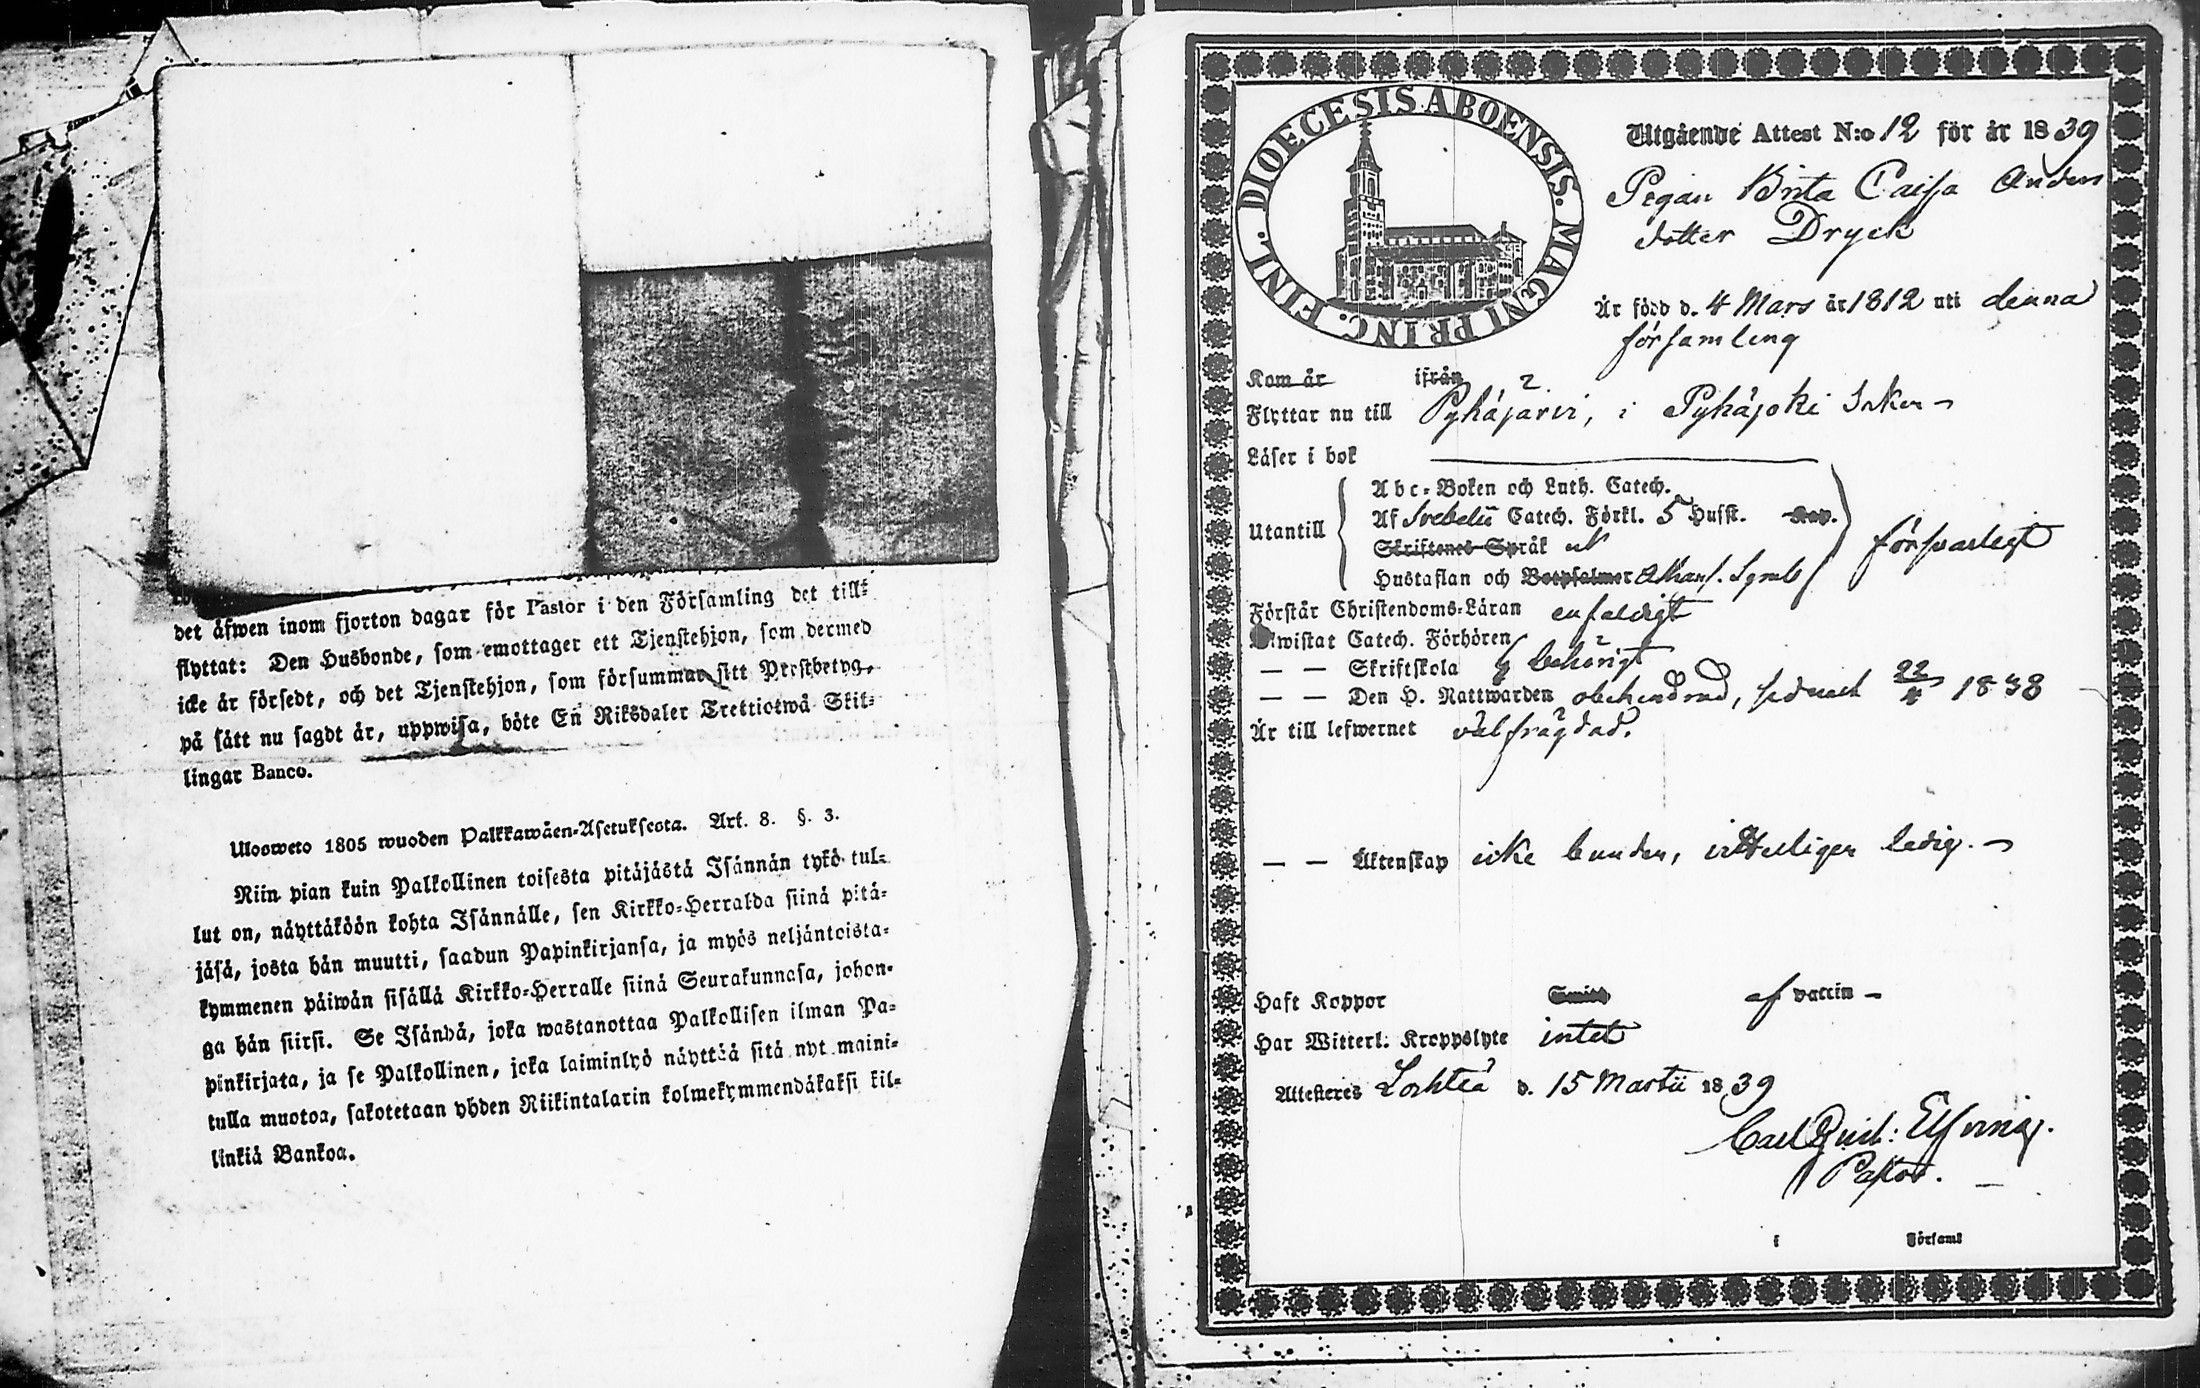 det äfwen inom fjorton dagar för Pastor i den Församling det till-
flyttat: Den Husbonde, som emottager ett Tjenstehjon, som dermed
icke är försedt, och det Tjenstehjon, som försummar sitt Prestbetyg,
på sätt nu sagdt är, uppwisa, böte En Riksdaler Trettiotwå Skil-
lingar Banco.
Ulosweto 1805 wuoden Palkkawäen-Asetuksesta. Art. 8. §. 3.
Niin pian kuin Palkollinen toisesta pitäjästä Isännän tykö tul-
lut on, näyttäköön kohta Isännälle, sen Kirkko-Herralda siinä pitä-
jäsä, josta hän muutti, saadun Papinkirjansa, ja myös neljäntoista-
kymmenen päiwän sisällä Kirkko-Herralle siinä Seurakunnasa, johon-
ga hän siirsi. Se Isändä, joka wastanottaa Palkollisen ilman Pa-
pinkirjata, ja se Palkollinen, joka laiminlyö näyttää sitä nyt maini-
tulla muotoa, sakotetaan yhden Riikintalarin kolmekymmendäkaksi kil-
linkiä Bankoa.
DIOECESIS ABOENSIS. MAGNI PRINC. FINL.
Utgående Attest N:o 12 för år 1839
Pigan Brita Caisa Anders
dotter Dryck
Är född d. 4 Mars år 1812 uti denna
församling
Kom år ifrån
2.
Flyttar nu till Pyhäjärvi, i Pyhäjoki Sokn
Läser i bok
Abc-Boken och Luth. Catech.
Utantill Af Svebelii Catech. Förkl. 5 Hufst. Kap. försvarligt
Skriftenes Språk
Hustaflan och Botpsalmer Athans. Symb
Förstår Christendoms-Läran enfaldigt
Bewistat Catech. Förhören
— — Skriftskola behörigt
— — Den H. Nattwarden obehindrad, sednast 22 1838
Är till lefwernet välfrägdad.
— — Äktenskap icke bunden, vitterligen ledig.
Haft Koppor Smitt af vaccin
Har Witterl. Kroppslyte intet
Attesteres Lochteå d. 15 Martii 1839
Carl Gust: Elfving.
Pastor.
i Församl